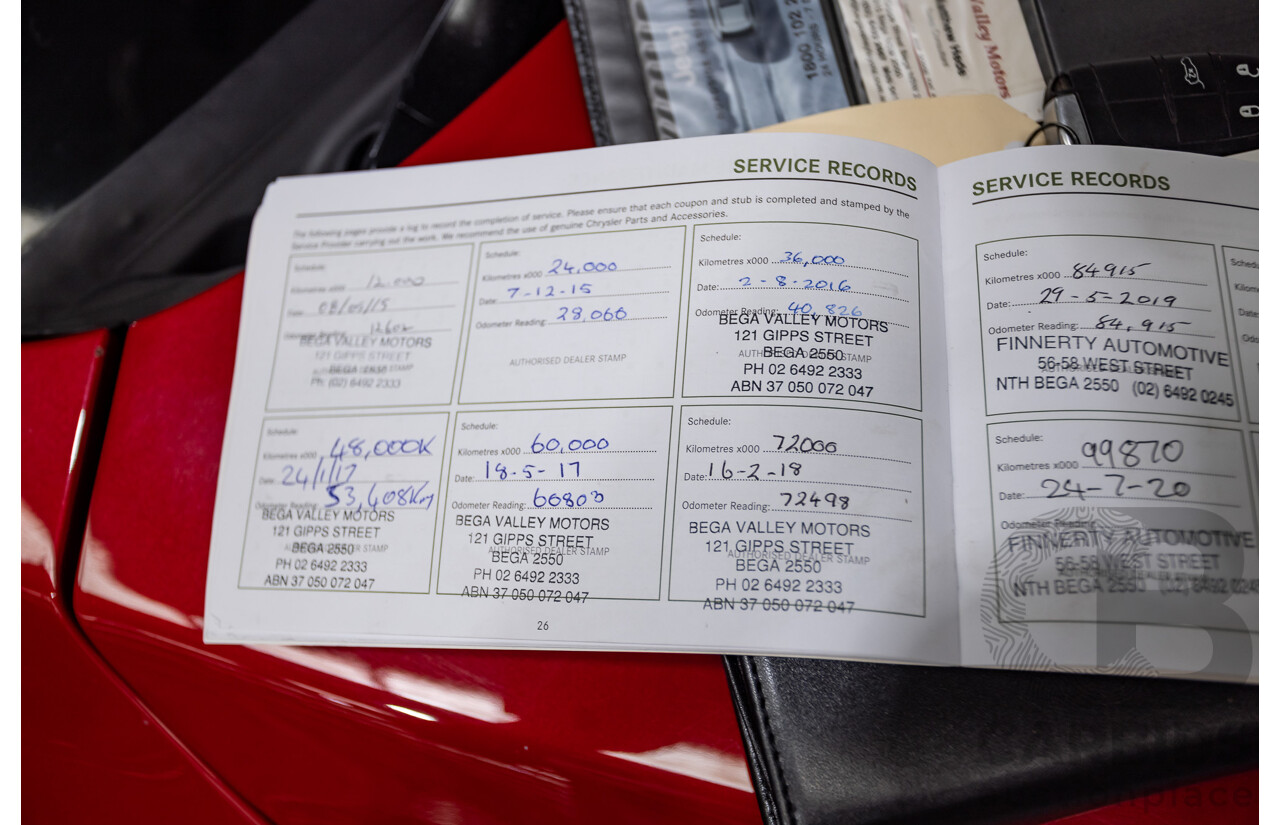 Jeep
1800 102 2
Matthew Hede
Valley Motors
x2
SERVICE RECORDS
The following pages provide a log to record the completion of service. Please ensure that each coupon and stub is completed and stamped by the
Service Provider carrying out the work. We recommend the use of genuine Chrysler Parts and Accessories.
Schedule:
Kilometres x000 12.000
Date: 08/05/15
Odometer Reading: 12602
BEGA VALLEY MOTORS
121 GIPPS STREET
BEGA 2550
Ph: (02) 6492 2333
Schedule:
Kilometres x000 24,000
Date: 7-12-15
Odometer Reading: 28,066
AUTHORISED DEALER STAMP
Schedule:
Kilometres x000 36,000
Date: 2-8-2016
Odometer Reading: 40,826
BEGA VALLEY MOTORS
121 GIPPS STREET
AUTHORISED DEALER STAMP
BEGA 2550
PH 02 6492 2333
ABN 37 050 072 047
Schedule:
Kilometres x000 48,000K
Date: 24/1/17
Odometer Reading: 53,408Km
BEGA VALLEY MOTORS
121 GIPPS STREET
AUTHORISED DEALER STAMP
BEGA 2550
PH 02 6492 2333
ABN 37 050 072 047
Schedule:
Kilometres x000 60,000
Date: 18-5-17
Odometer Reading: 66803
BEGA VALLEY MOTORS
121 GIPPS STREET
AUTHORISED DEALER STAMP
BEGA 2550
PH 02 6492 2333
ABN 37 050 072 047
Schedule:
Kilometres x000 72000
Date: 16-2-18
Odometer Reading: 72498
BEGA VALLEY MOTORS
121 GIPPS STREET
AUTHORISED DEALER STAMP
BEGA 2550
PH 02 6492 2333
ABN 37 050 072 047
26
SERVICE RECORDS
Schedule:
Kilometres x000 84915
Date: 29-5-2019
Odometer Reading: 84,915
FINNERTY AUTOMOTIVE
56-58 WEST STREET
NTH BEGA 2550 (02) 6492 0245
Schedule:
Kilometres x000 99870
Date: 24-7-20
Odometer Reading:
FINNERTY AUTOMOTIVE
56-58 WEST STREET
NTH BEGA 2550 (02) 6492 0245